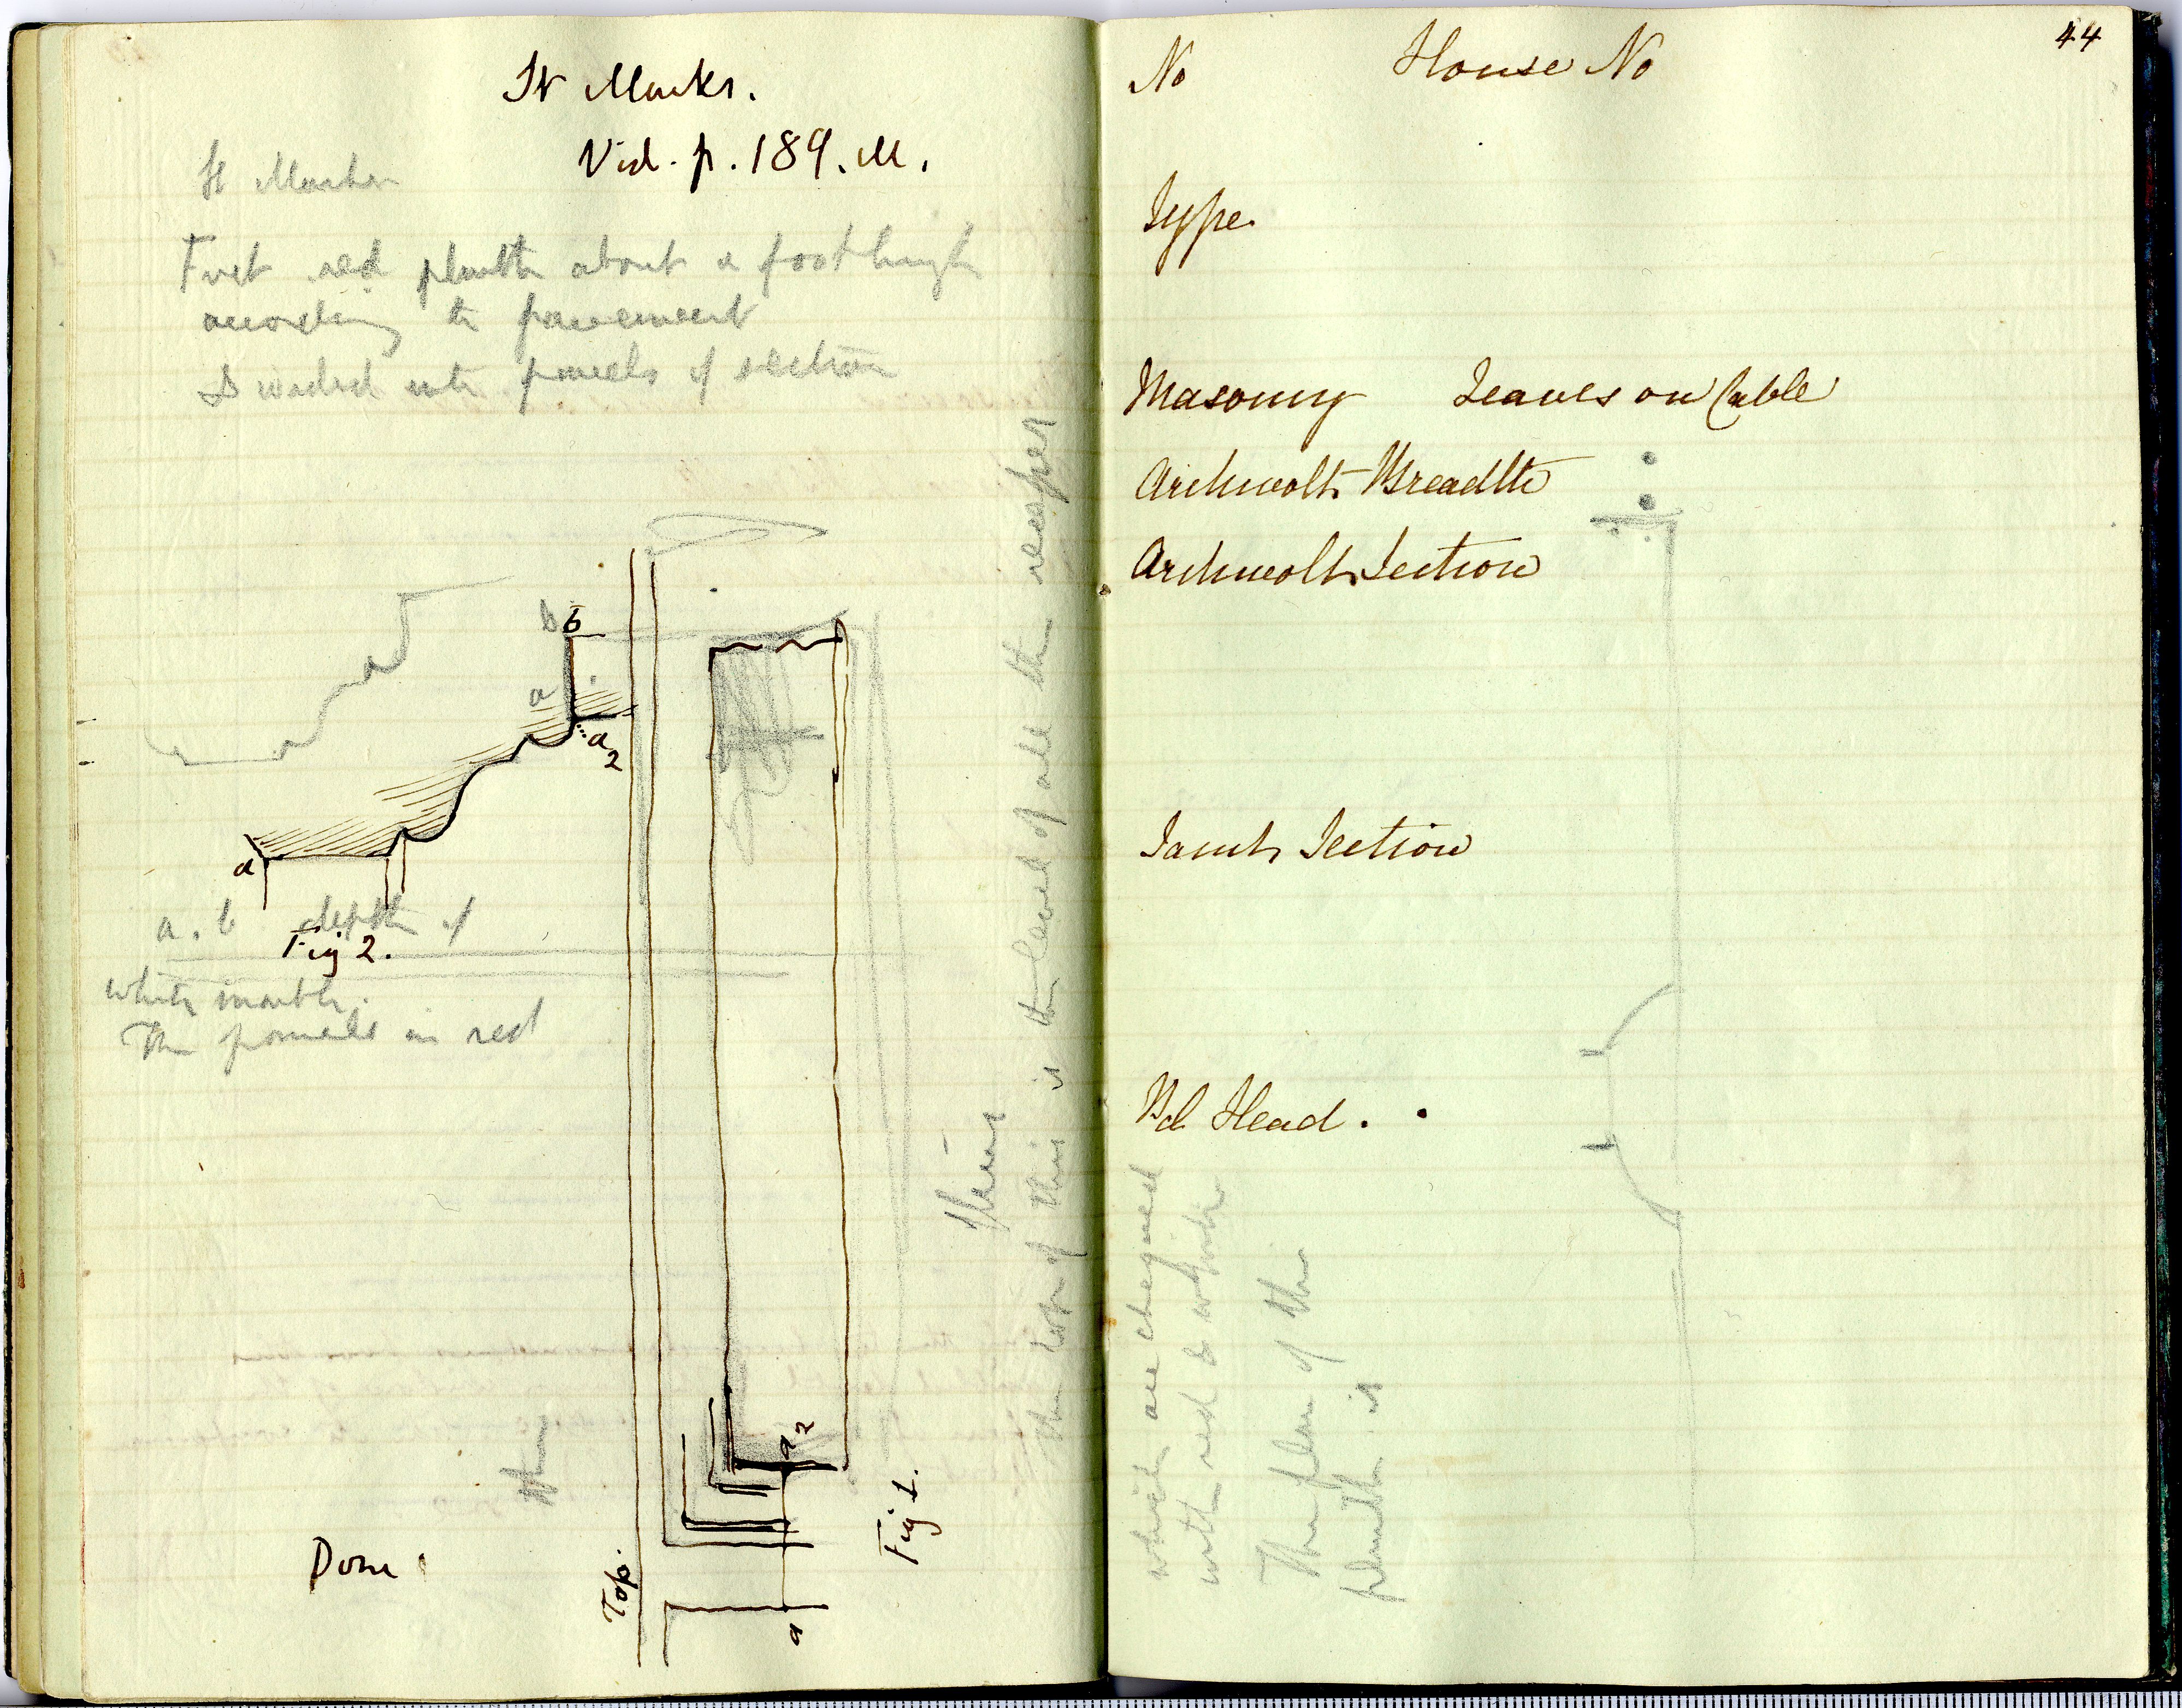 St Marks.
Vid. p. 189. M.
St Marks
First red plinth about a foot high
according to pavement
Divided into panels of section
b b
a
a
2
a
a . b depth of
Fig 2.
white marble.
The panels in red
thus
the top of this is the level of all the
Done
Top.
Fig 1.
a 2
a
44
No House No
Type
Masonry Leaves on Cable
Archivolt Breadth
Archivolt Section
Jamb Section
Bd Head .
which are chequed
with red & white
The plan of the
plinth is